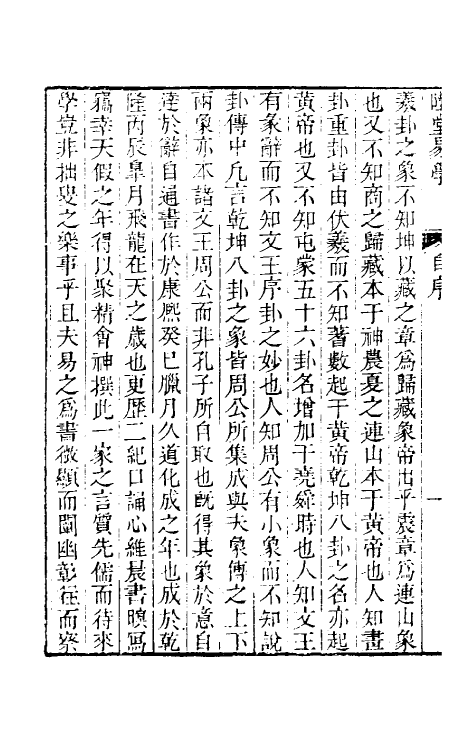 羲卦之象不知坤以藏之章爲歸藏象帝出乎震章爲連山象
也又不知商之歸藏本于神農夏之連山本于黄帝也人知畫
卦重卦皆由伏羲而不知蓍數起于黄帝乾坤八卦之名亦起
黄帝也又不知屯蒙五十六卦名增加于堯舜時也人知文王
有彖辭而不知文王序卦之妙也人知周公有小象而不知說
卦傳中凡言乾坤八卦之象皆周公所集成與大象傳之上下
兩象亦本諸文王周公而非孔子所自取也旣得其象於意自
達於辭自通書作於康熈癸巳臘月久道化成之年也成於乾
隆丙辰臯月飛龍在天之歲也更歷二紀口誦心維晨書暝寫
竊幸天假之年得以聚精會神撰此一家之言質先儒而待來
學豈非拙叟之樂事乎且夫易之爲書微顯而闡幽彰往而察
堂易學 自序 一